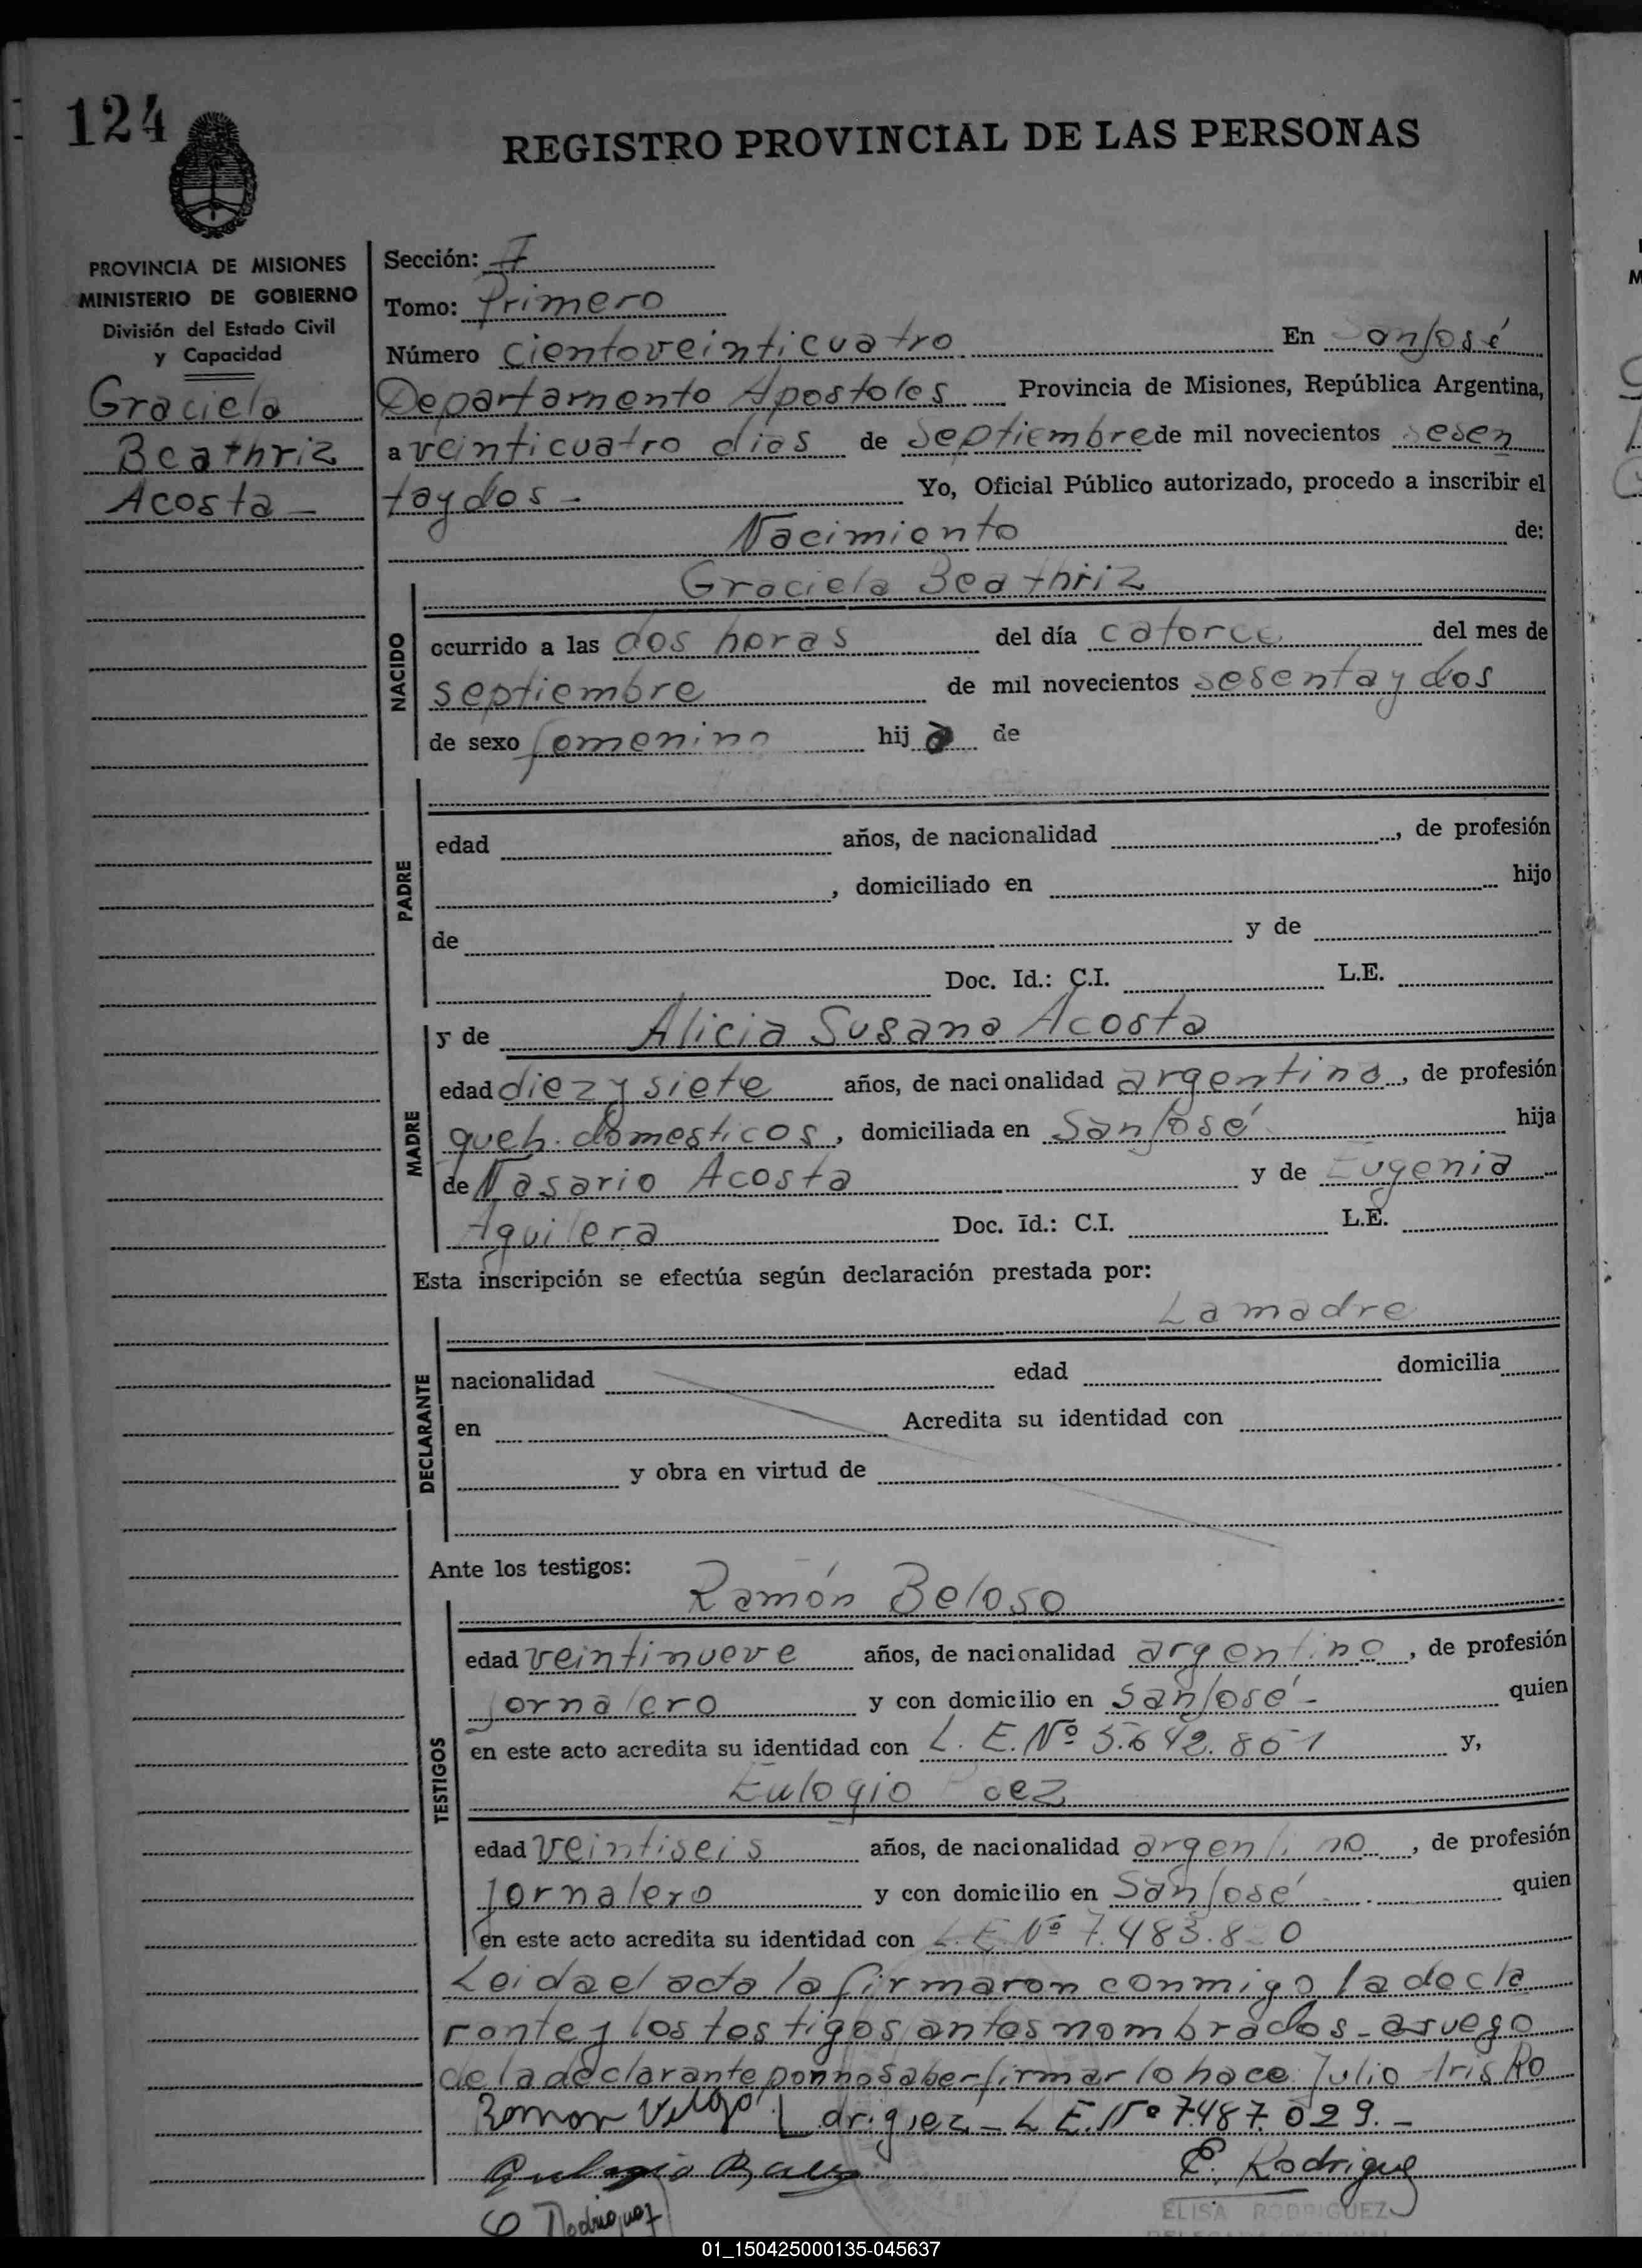 124
REGISTRO PROVINCIAL DE LAS PERSONAS
PROVINCIA DE MISIONES
MINISTERIO DE GOBIERNO
División del Estado Civil
y Capacidad
Graciela
Beathriz
Acosta -
Sección: I
Tomo: Primero
Número cientoveinticuatro En San José
Departamento Apostoles Provincia de Misiones, República Argentina,
a veinticuatro dias de septiembre de mil novecientos sesen
taydos - Yo, Oficial Público autorizado, procedo a inscribir el
Nacimiento de:
Graciela Beathriz
NACIDO
ocurrido a las dos horas del día catorce del mes de
septiembre de mil novecientos sesentaydos
de sexo femenino hija de
PADRE
edad años, de nacionalidad , de profesión
, domiciliado en hijo
de y de
Doc. Id.: C.I. L.E.
MADRE
y de Alicia Susana Acosta
edad diez y siete años, de nacionalidad argentina, de profesión
queh. domesticos, domiciliada en San José hija
de Nasario Acosta y de Eugenia
Aguilera Doc. Id.: C.I. L.E.
Esta inscripción se efectúa según declaración prestada por:
La madre
DECLARANTE
nacionalidad edad domicilia
en Acredita su identidad con
y obra en virtud de
Ante los testigos:
Ramón Beloso
TESTIGOS
edad veintinueve años, de nacionalidad argentino, de profesión
jornalero y con domicilio en San José - quien
en este acto acredita su identidad con L. E. Nº 5.642.861 y,
Eulogio
edad veintiseis años, de nacionalidad argentino, de profesión
Jornalero y con domicilio en San José quien
en este acto acredita su identidad con L. E Nº
Leida el acta la firmaron conmigo la decla
rante y los testigos antes nombrados - a ruego
de la declarante por no saber firmar lo hace Julio Iris Ro
driguez - L E. Nº 7.487.029. -
Ramon
E. Rodriguez
Rodriguez
ELISA RODRIGUEZ
01_150425000135-045637